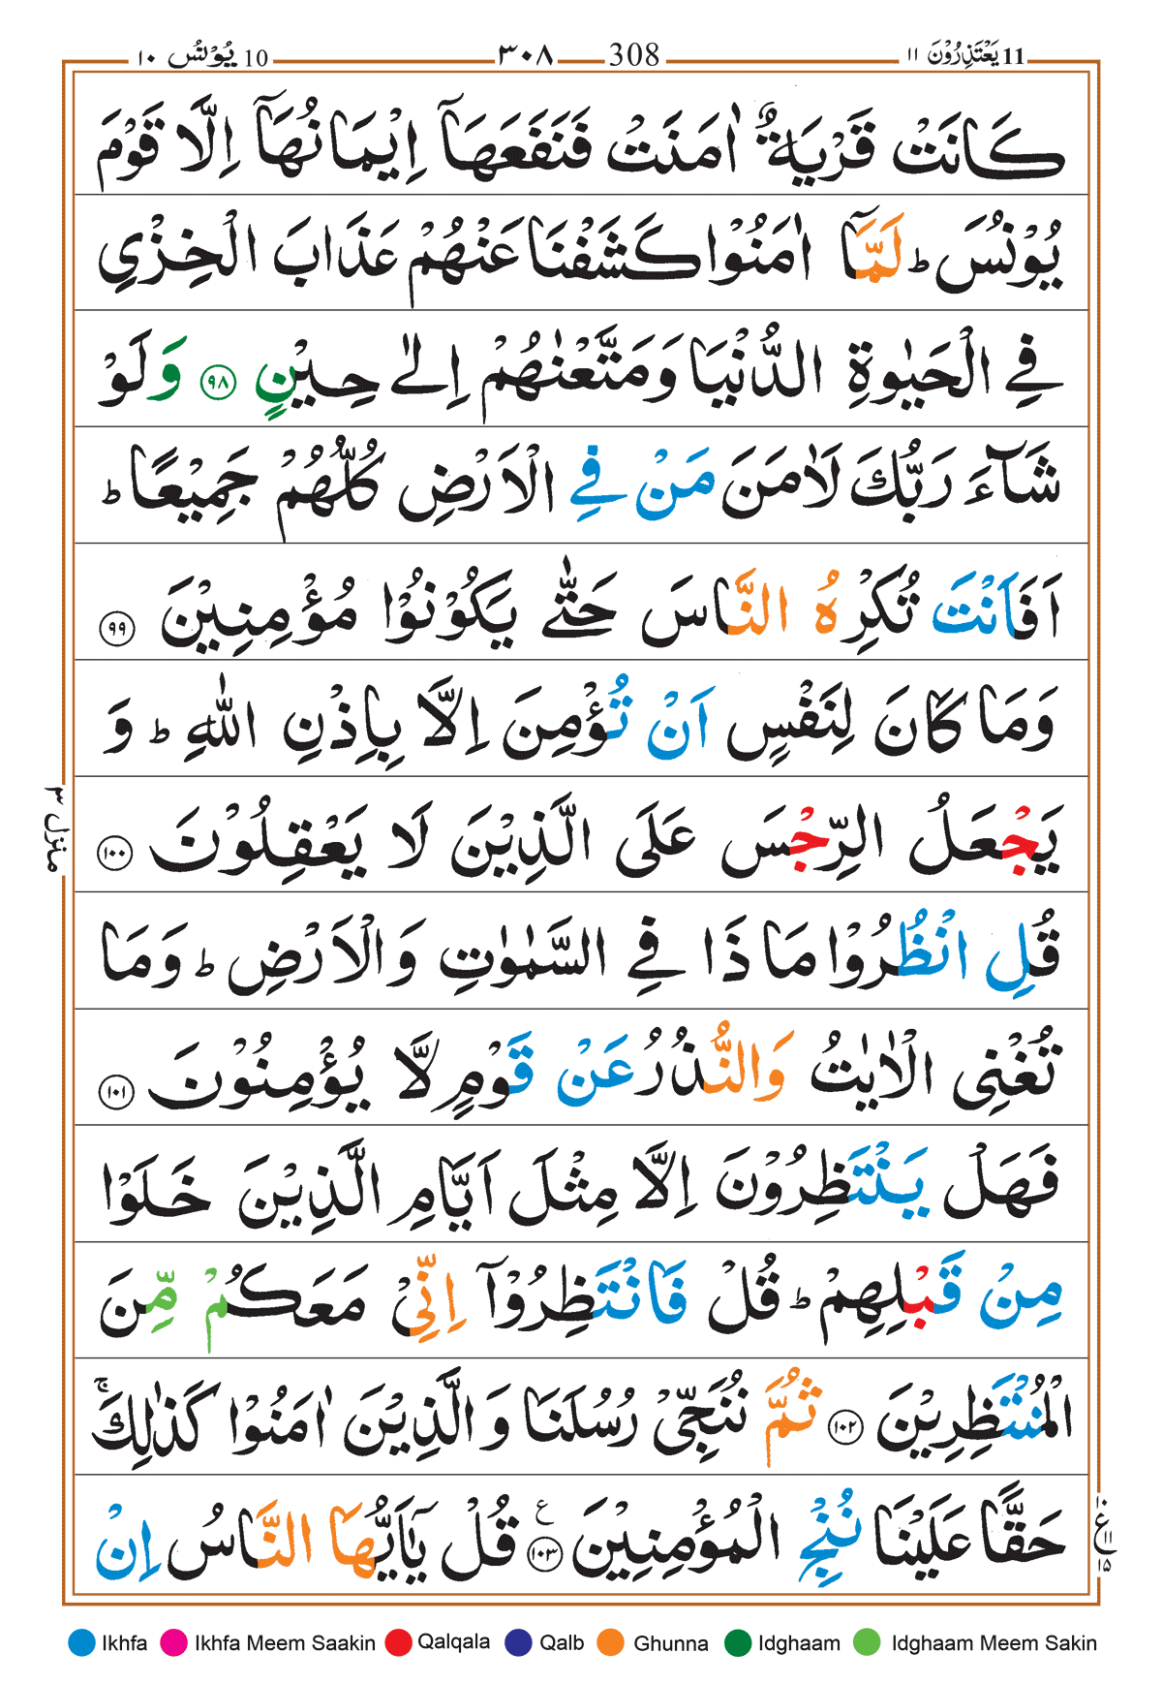 يُوْنُس ١٠ 10 ٣٠٨ 308 يَعْتَذِرُوْنَ ١١ 11
كَانَتْ قَرْيَةٌ اٰمَنَتْ فَنَفَعَهَاۤ اِيْمَانُهَاۤ اِلَّا قَوْمَ
يُوْنُسَ ؕ لَمَّاۤ اٰمَنُوْا كَشَفْنَا عَنْهُمْ عَذَابَ الْخِزْيِ
فِي الْحَيٰوةِ الدُّنْيَا وَمَتَّعْنٰهُمْ اِلٰى حِيْنٍ ﴿٩٨﴾ وَلَوْ
شَآءَ رَبُّكَ لَاٰمَنَ مَنْ فِي الْاَرْضِ كُلُّهُمْ جَمِيْعًا ؕ
اَفَاَنْتَ تُكْرِهُ النَّاسَ حَتّٰى يَكُوْنُوْا مُؤْمِنِيْنَ ﴿٩٩﴾
وَمَا كَانَ لِنَفْسٍ اَنْ تُؤْمِنَ اِلَّا بِاِذْنِ اللّٰهِ ؕ وَ
يَجْعَلُ الرِّجْسَ عَلَى الَّذِيْنَ لَا يَعْقِلُوْنَ ﴿١٠٠﴾
منزل ٣
قُلِ انْظُرُوْا مَاذَا فِي السَّمٰوٰتِ وَالْاَرْضِ ؕ وَمَا
تُغْنِى الْاٰيٰتُ وَالنُّذُرُ عَنْ قَوْمٍ لَّا يُؤْمِنُوْنَ ﴿١٠١﴾
فَهَلْ يَنْتَظِرُوْنَ اِلَّا مِثْلَ اَيَّامِ الَّذِيْنَ خَلَوْا
مِنْ قَبْلِهِمْ ؕ قُلْ فَانْتَظِرُوْۤا اِنِّىْ مَعَكُمْ مِّنَ
الْمُنْتَظِرِيْنَ ﴿١٠٢﴾ ثُمَّ نُنَجِّىْ رُسُلَنَا وَالَّذِيْنَ اٰمَنُوْا كَذٰلِكَ ۚ
حَقًّا عَلَيْنَا نُنْجِ الْمُؤْمِنِيْنَ ﴿١٠٣﴾ ع قُلْ يٰۤاَيُّهَا النَّاسُ اِنْ
Ikhfa Ikhfa Meem Saakin Qalqala Qalb Ghunna Idghaam Idghaam Meem Sakin